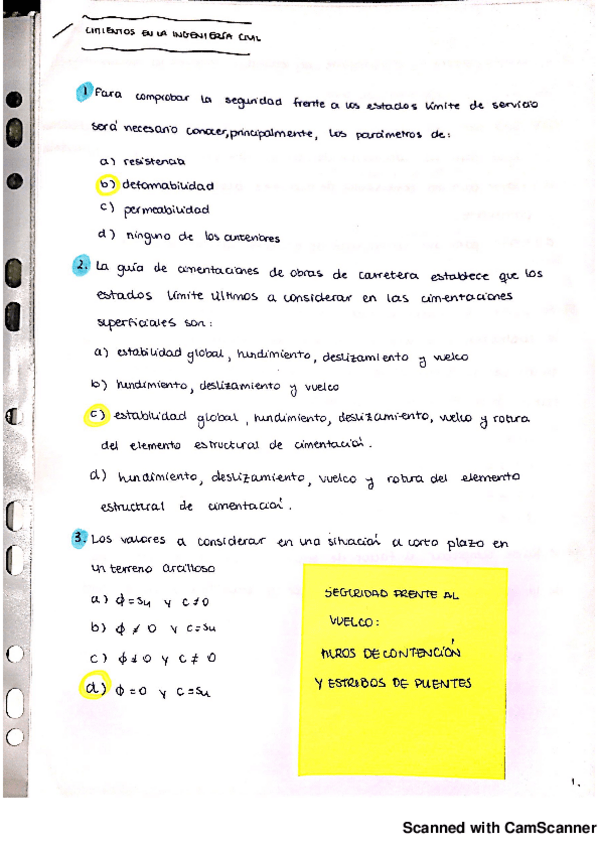 CIMIENTOS EN LA INGENIERÍA CIVIL
1 Para comprobar la seguridad frente a los estados límite de servicio
será necesario conocer, principalmente, los parámetros de:
a) resistencia
b) deformabilidad
c) permeabilidad
d) ninguno de los anteriores
2. La guía de cimentaciones de obras de carretera establece que los
estados límite últimos a considerar en las cimentaciones
superficiales son:
a) estabilidad global, hundimiento, deslizamiento y vuelco
b) hundimiento, deslizamiento y vuelco
c) estabilidad global, hundimiento, deslizamiento, vuelco y rotura
del elemento estructural de cimentación.
d) hundimiento, deslizamiento, vuelco y rotura del elemento
estructural de cimentación.
3. Los valores a considerar en una situación a corto plazo en
un terreno arcilloso
a) ϕ=Su y c≠0
b) ϕ ≠ 0 y c=Su
c) ϕ≠0 y c ≠ 0
d) ϕ=0 y c=Su
SEGURIDAD FRENTE AL
VUELCO:
MUROS DE CONTENCIÓN
Y ESTRIBOS DE PUENTES
1.
Scanned with CamScanner